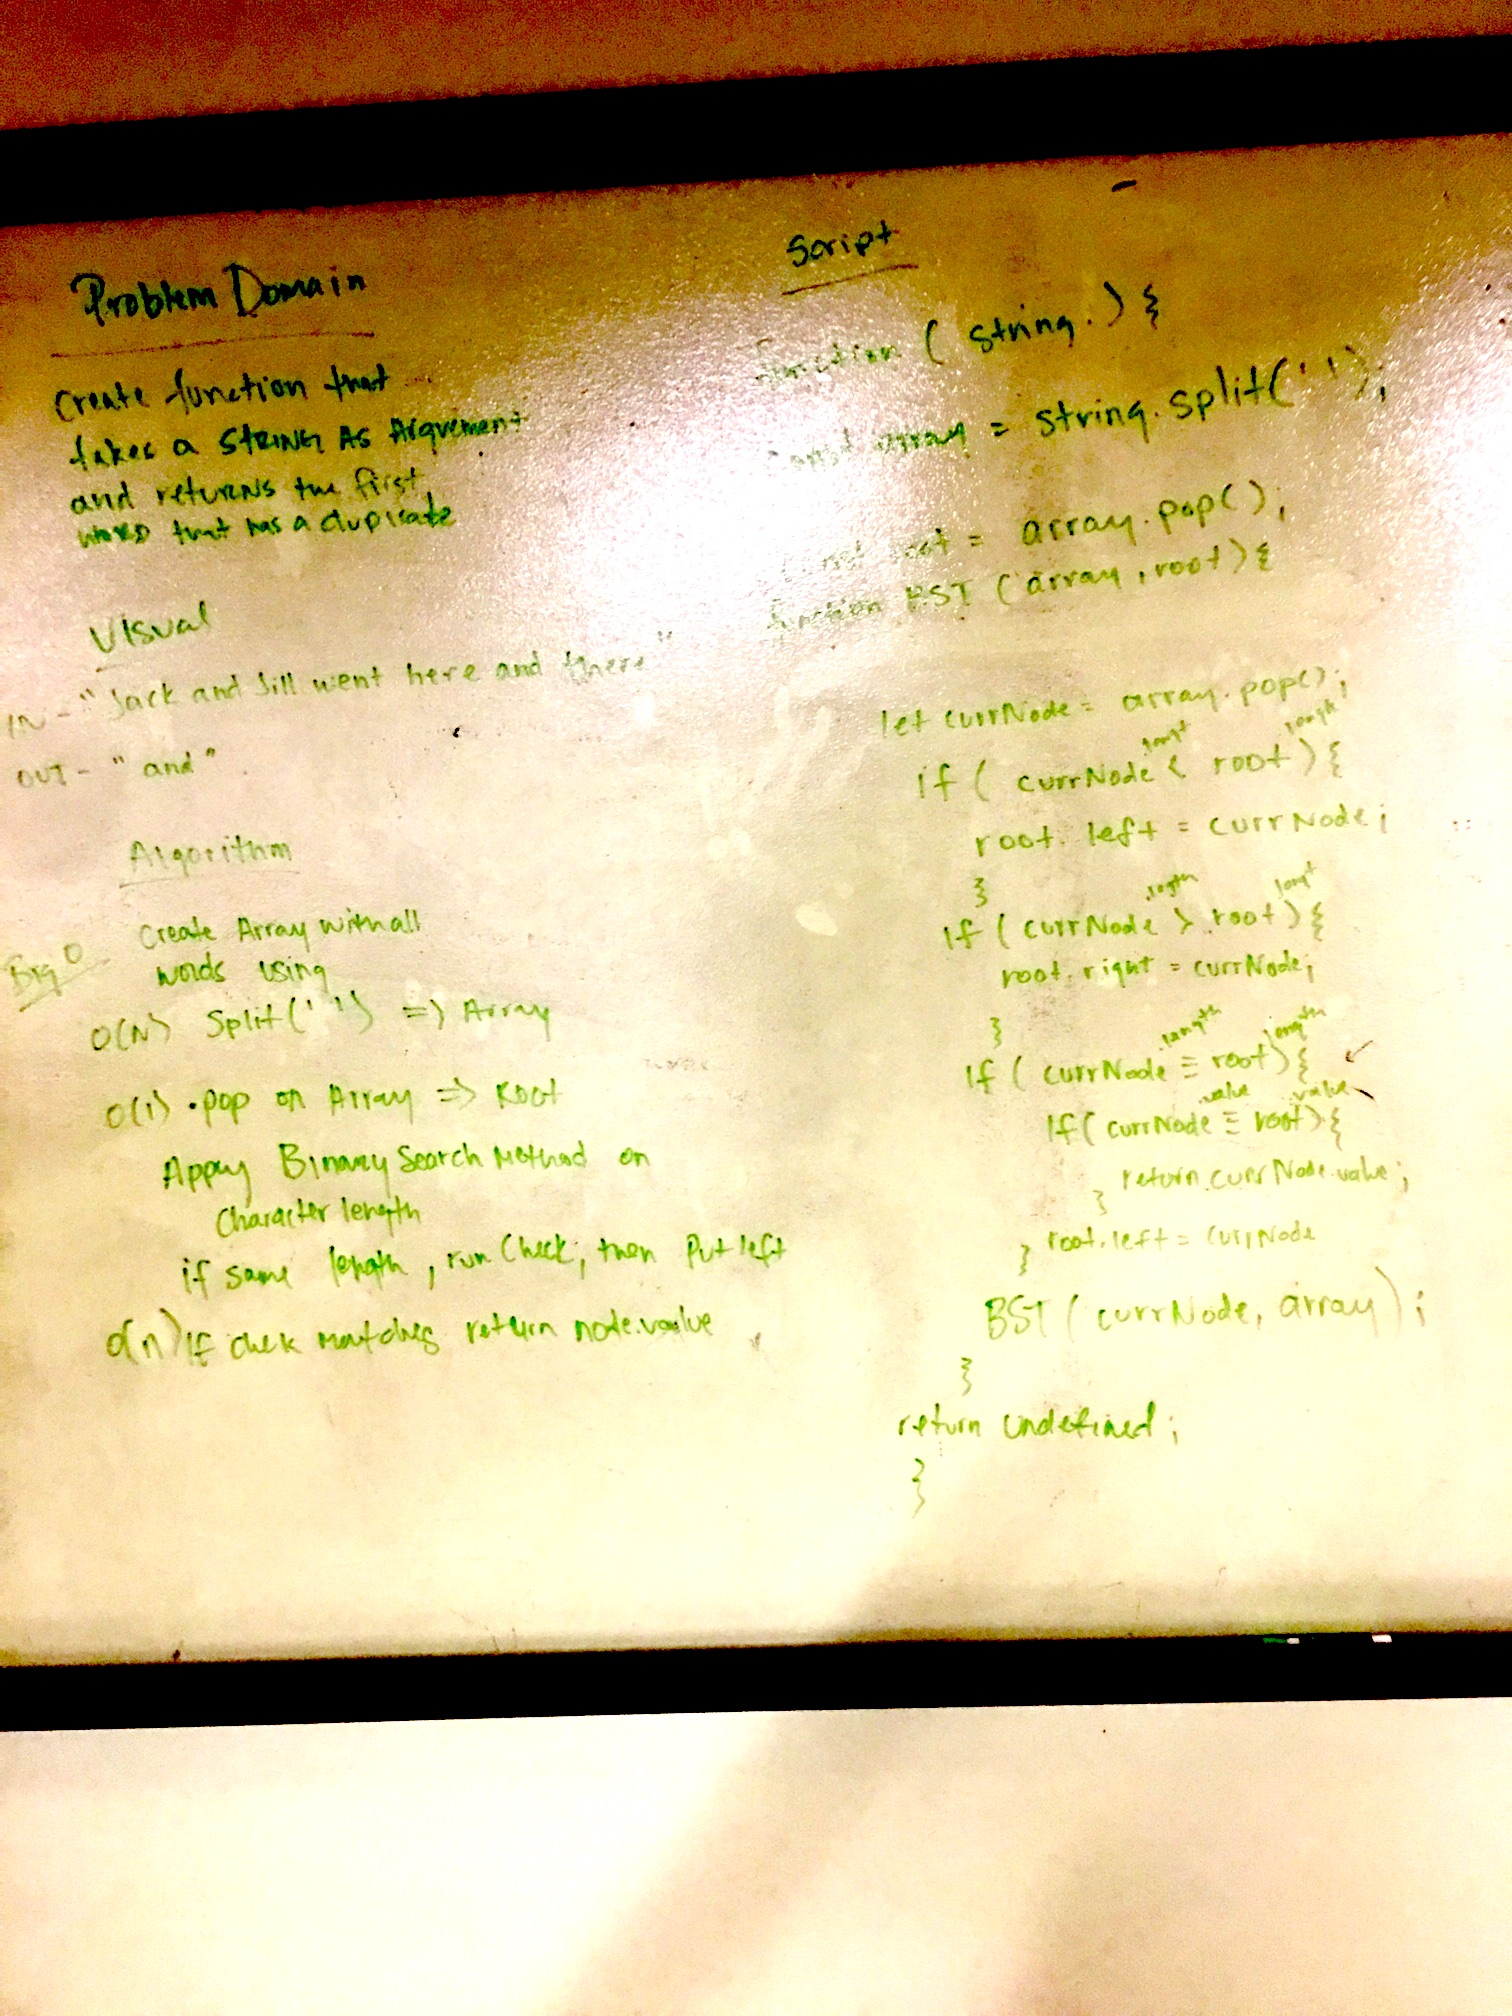 Problem Domain
Create function that
takes a STRING As Arguement
and returns the first
word that has a duplicate
Visual
IN - "Jack and Jill went here and there"
OUT - "and"
Algorithm
Create Array with all
words using
Big O
O(N) Split(' ') => Array
O(1) .pop on Array => Root
Appay Binary Search Method on
Character length
if same length, run Check, then Put left
O(n) If chek matches return node.value
Script
function ( string.) {
const array = string.split(' ');
const root = array.pop();
function BST (array, root) {
let currNode = array.pop();
.lengt length
if ( currNode < root ) {
root.left = currNode;
}
.legth .lengt
if ( currNode > root ) {
root.right = currNode;
}
.length length
if ( currNode ≡ root) {
.value .value
if( currNode ≡ root) {
return currNode.value;
}
root.left = currNode
}
BST ( currNode, array);
}
return undefined;
}